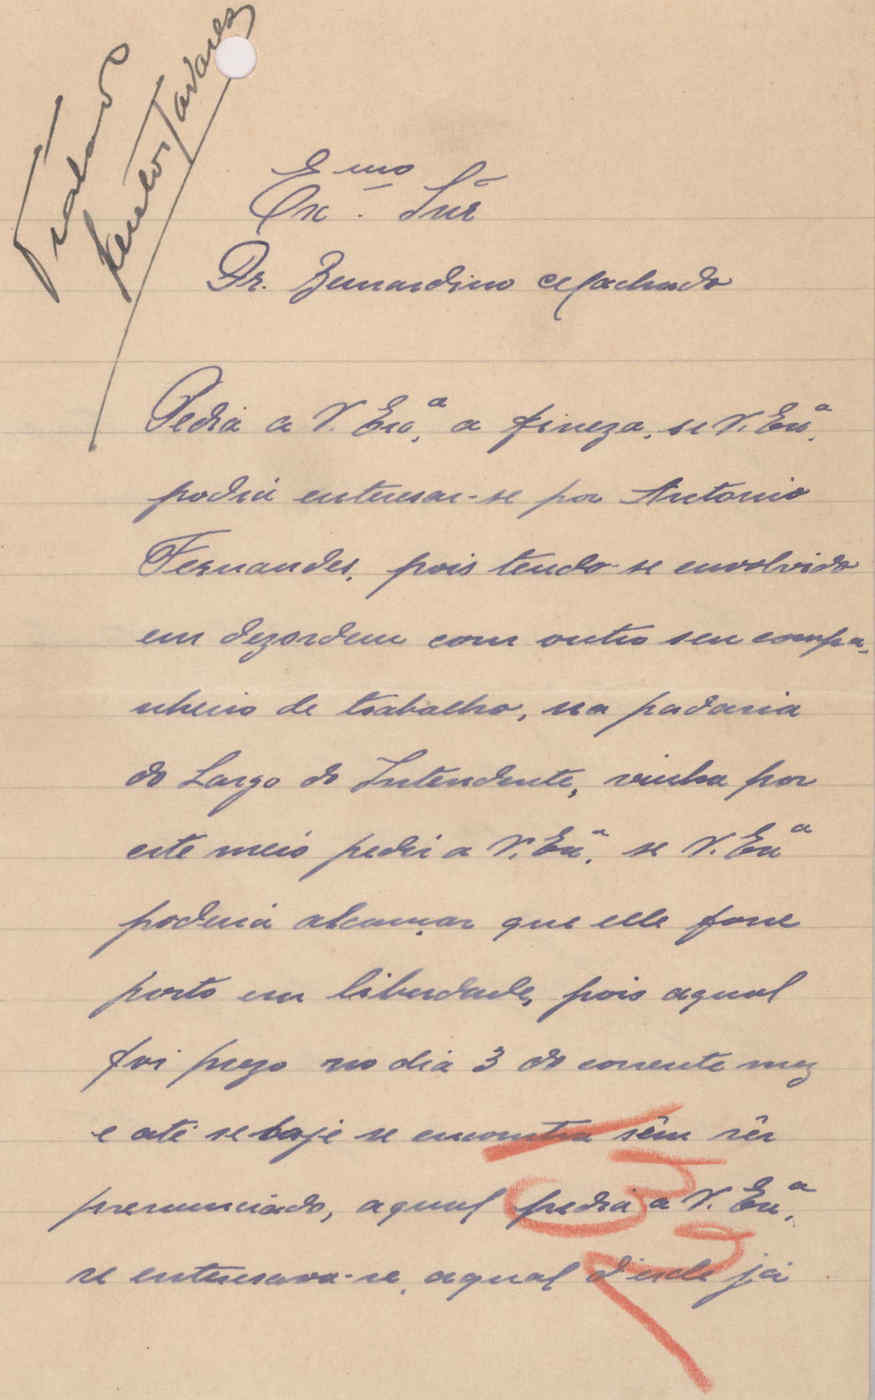 Tratado
Santos Tavares
Ex.mo Snr
Dr. Bernardino Machado
Pedia a V. Exa., a fineza, se V. Exa.
podia enteresar-se por Antonio
Fernandes, pois tendo-se envolvido
em dezordem com outro seu compa-
nheiro de trabalho, na padaria
do Largo do Intendente, vinha por
este meio pedir a V. Exa. se V. Exa
poderia alcançar que elle fosse
posto em liberdade, pois aqual
foi prezo no dia 3 do corrente mez
e até se hoje se encontra sêm sêr
prenunciado, aqual pedia a V. Exa.
se enteresava-se, aqual desde já
132